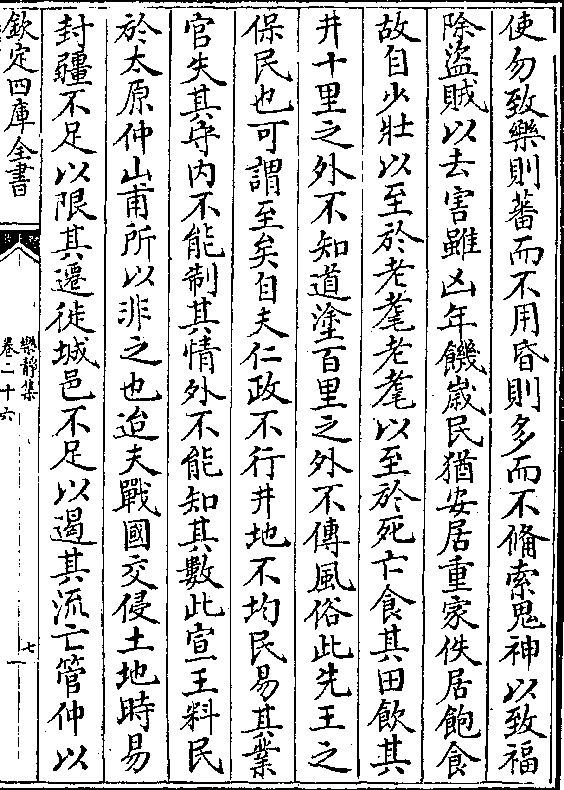 使勿致樂則蕃而不用昏則多而不備索鬼神以致福
除盜賊以去害雖凶年饑嵗民猶安居重家佚居飽食
故自少壯以至於老耄老耄以至於死亡食其田飲其
井十里之外不知道塗百里之外不傳風俗此先王之
保民也可謂至矣自夫仁政不行井地不均民易其業
官失其守内不能制其情外不能知其數此宣王料民
於太原仲山甫所以非之也迨夫戰國交侵土地時易
封疆不足以限其遷徙城邑不足以遏其流亡管仲以
欽定四庫全書
樂靜集
卷二十六
七